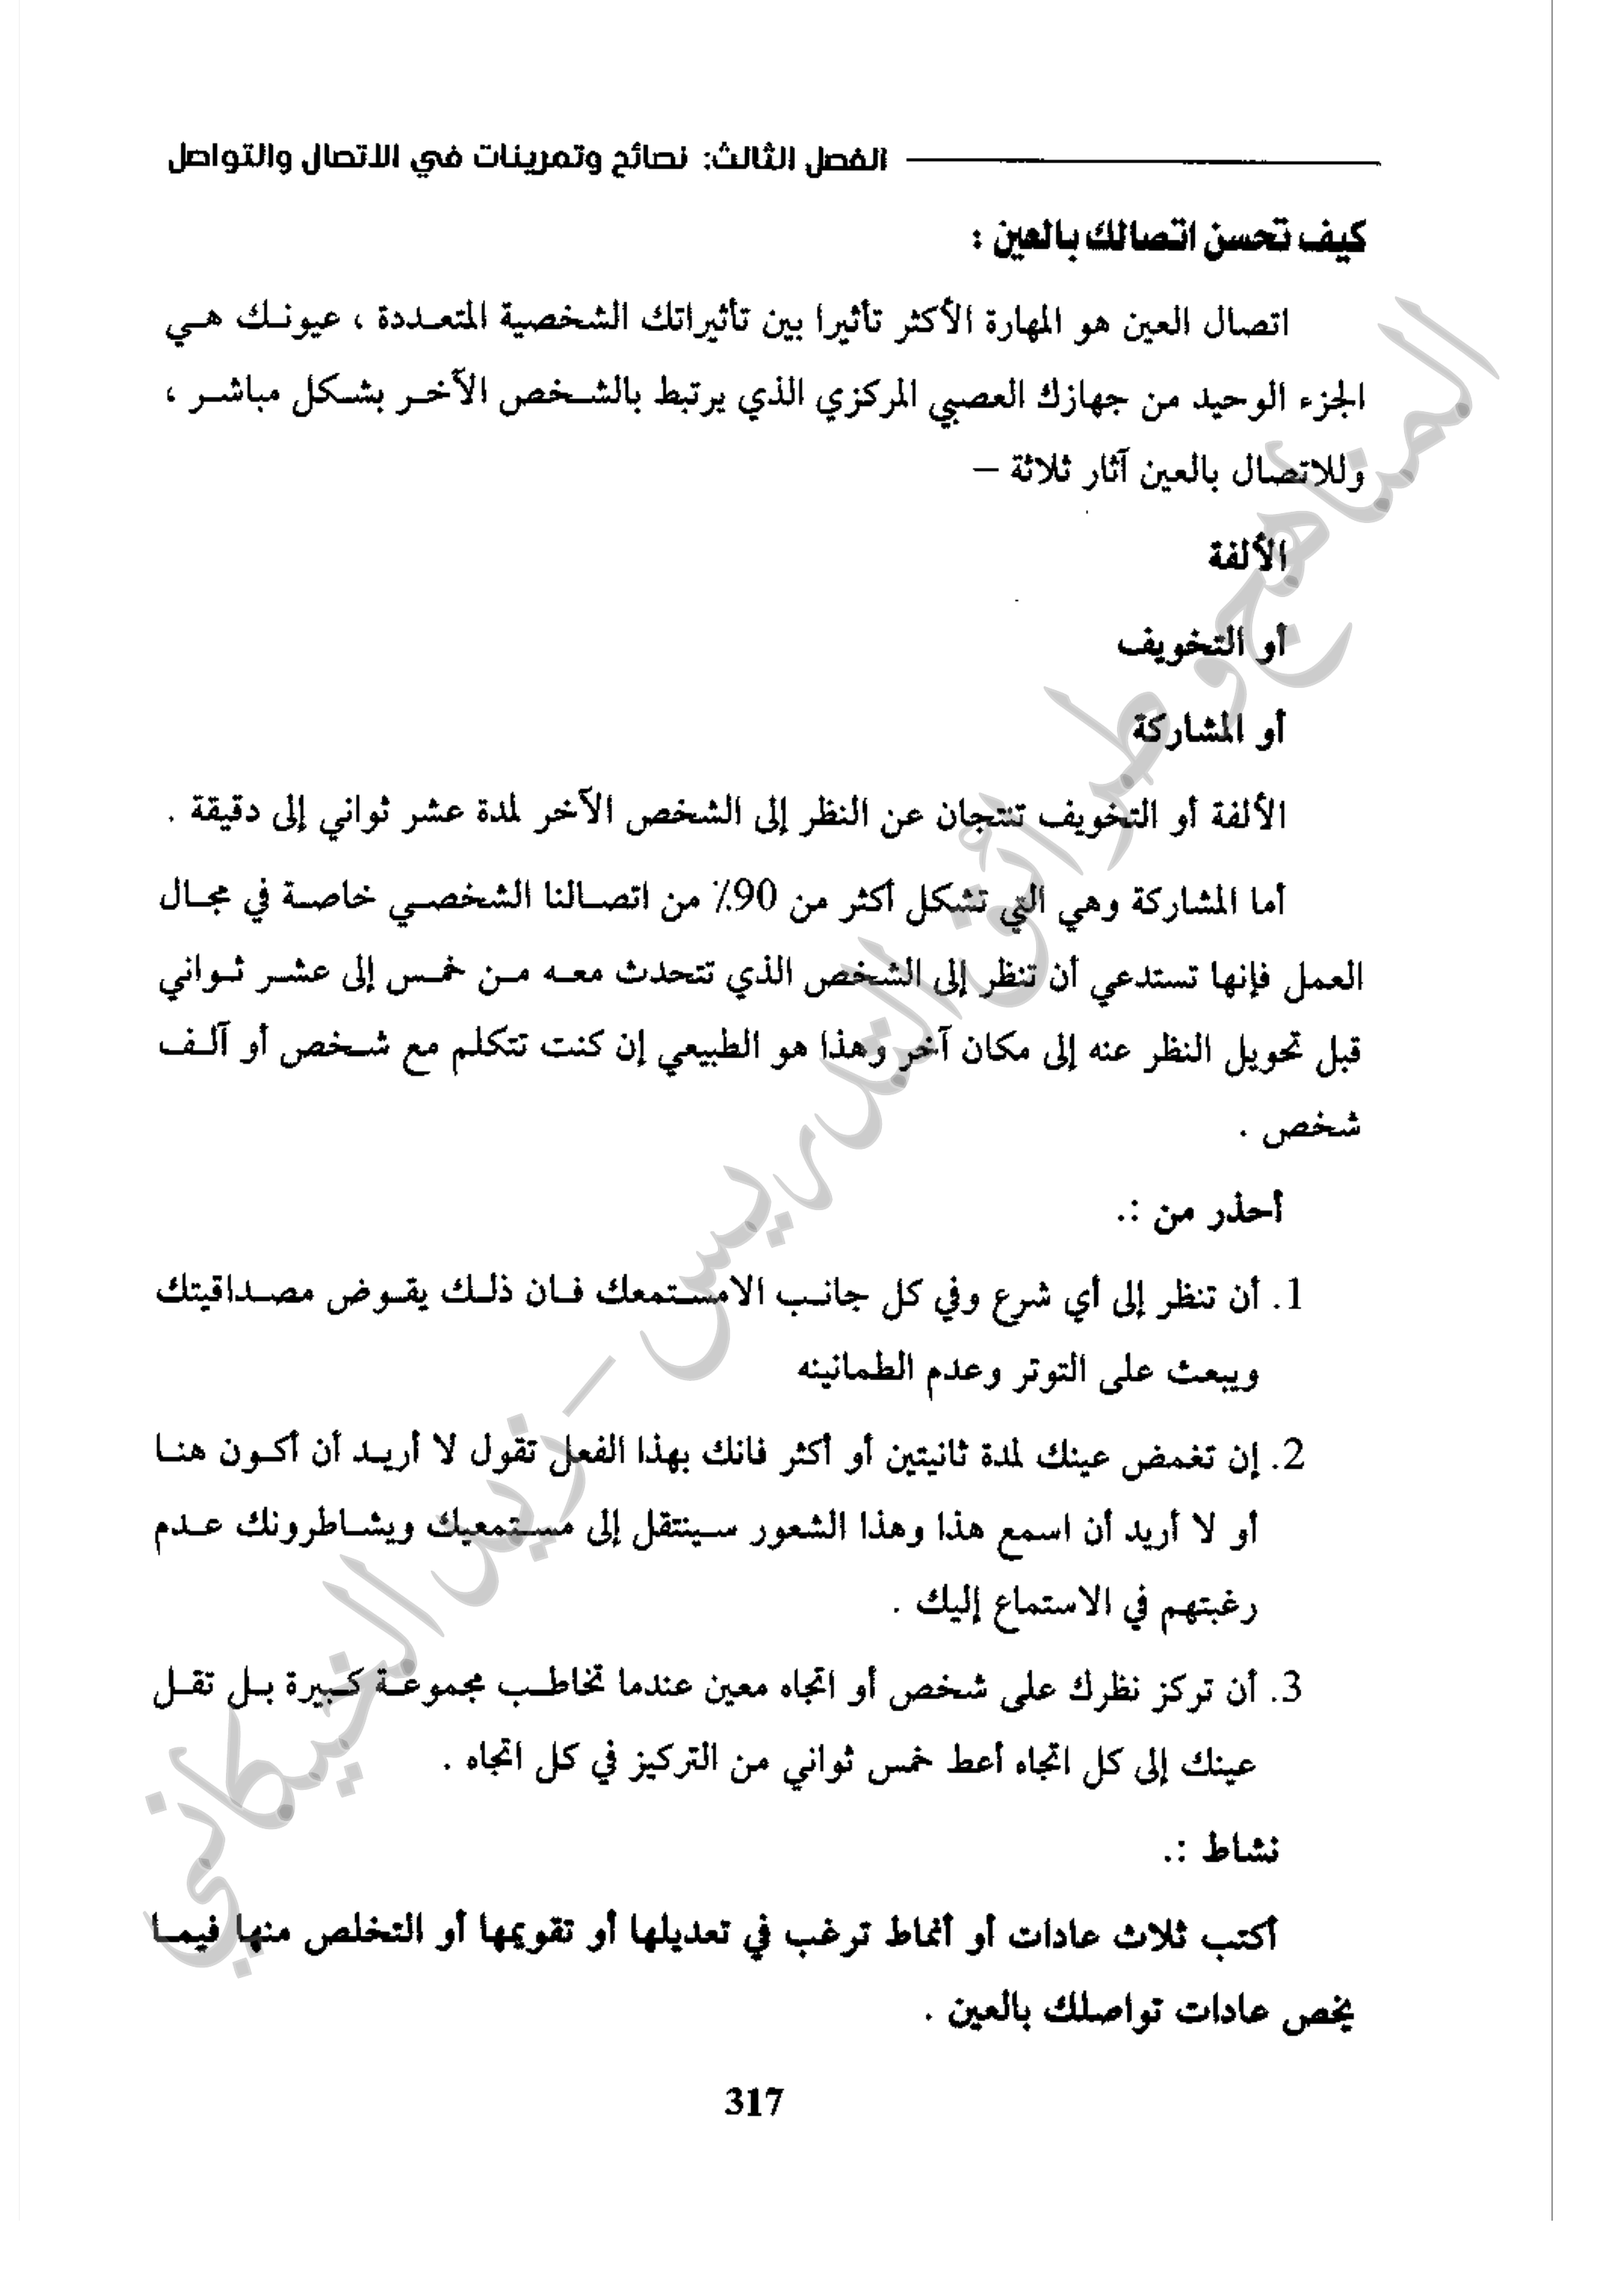 الفصل الثالث: نصائح وتمرينات في الاتصال والتواصل
كيف تحسن اتصالك بالعين :
اتصال العين هو المهارة الأكثر تأثيرا بين تأثيراتك الشخصية المتعددة ، عيونك هي
الجزء الوحيد من جهازك العصبي المركزي الذي يرتبط بالشخص الآخر بشكل مباشر ،
وللاتصال بالعين آثار ثلاثة –
الألفة
أو التخويف
أو المشاركة
الألفة أو التخويف تنتجان عن النظر إلى الشخص الآخر لمدة عشر ثواني إلى دقيقة .
أما المشاركة وهي التي تشكل أكثر من 90٪ من اتصالنا الشخصي خاصة في مجال
العمل فإنها تستدعي أن تنظر إلى الشخص الذي تتحدث معه من خمس إلى عشر ثواني
قبل تحويل النظر عنه إلى مكان آخر وهذا هو الطبيعي إن كنت تتكلم مع شخص أو آلف
شخص .
أحذر من :.
1. أن تنظر إلى أي شرع وفي كل جانب الامستمعك فان ذلك يقوض مصداقيتك
ويبعث على التوتر وعدم الطمانينه
2. إن تغمض عينك لمدة ثانيتين أو أكثر فانك بهذا الفعل تقول لا أريد أن أكون هنا
أو لا أريد أن اسمع هذا وهذا الشعور سينتقل إلى مستمعيك ويشاطرونك عدم
رغبتهم في الاستماع إليك .
3. أن تركز نظرك على شخص أو اتجاه معين عندما تخاطب مجموعة كبيرة بل تقل
عينك إلى كل اتجاه أعط خمس ثواني من التركيز في كل اتجاه .
نشاط :.
أكتب ثلاث عادات أو أنماط ترغب في تعديلها أو تقويمها أو التخلص منها فيما
يخص عادات تواصلك بالعين .
317
المناهج وطرائق التدريس – زيد الخيكاني